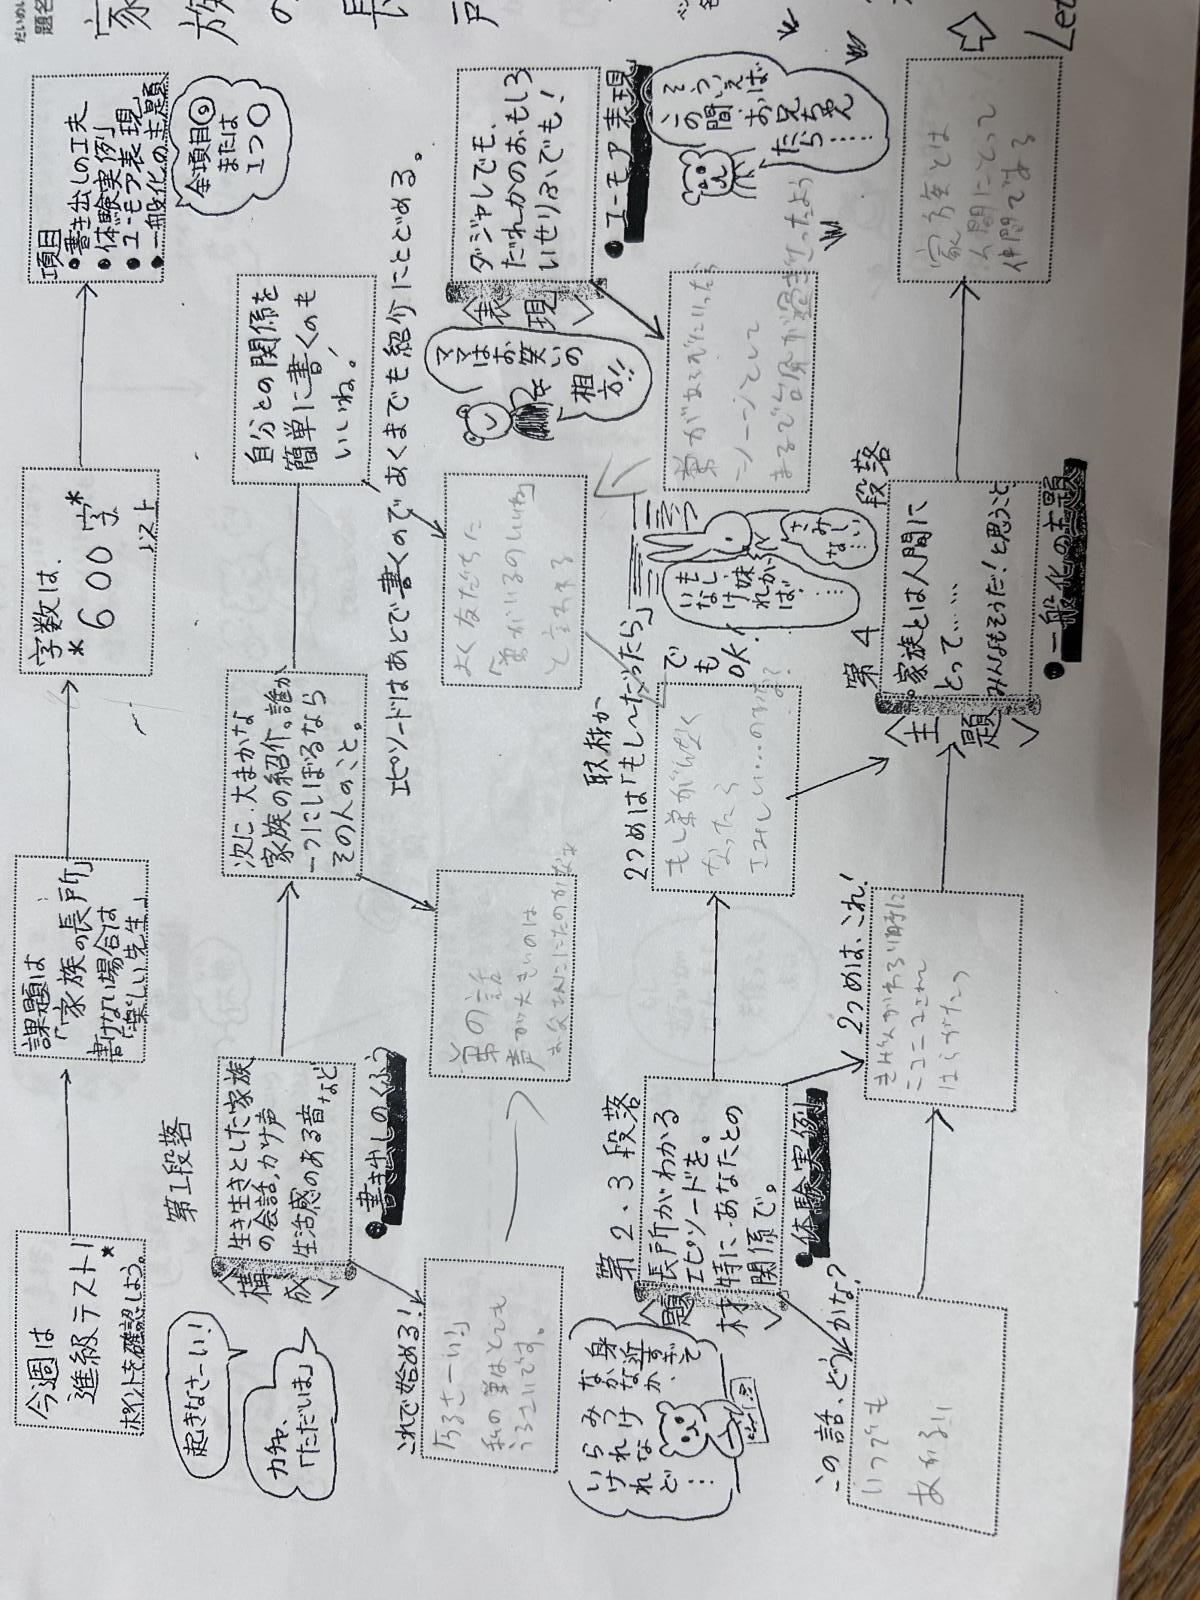 だいめい
題名
家族の長所
今週は
進級テスト!
*ポイントを確認しよう。
課題は
「家族の長所」
書けない場合は
「楽しい先生」
字数は、
*600字*
以上
項目
・書き出しの工夫
・体験実例
・ユーモア表現
・一般化の主題
全項目◎
または
1つ○
第1段落
起きなさーい!
カチャ、
「ただいま」
〈構成〉
生き生きとした家族
の会話、かけ声
生活感のある音など
・書き出しのくふう
次に、大まかな
家族の紹介、誰か
一つにしぼるなら
その人のこと。
自分との関係を
簡単に書くのも
いいね!
エピソードはあとで書くのであくまでも紹介にとどめる。
これで始める!
「うるさーい!」
私の弟はとても
うるさいです。
弟の話
声が大きいのは
お父さんに
よく友だちに
「弟がいるのいいね」
と言われる
〈表現〉
ダジャレでも、
だれかのおもしろ
いせりふでも!
・ユーモア表現
ママは
お笑いの
相方!!
そういえば
この間
お兄ちゃん
たら……
第2・3段落
〈題材〉
長所がわかる
エピソードを。
特に、あなたとの
関係で。
・体験実例
身近すぎて
なかなか、
みつけ
られない
いけれど…
取材か
2つめは「もし〜だったら」
でもOK!
もし弟がいなく
なったら
さみしい…
もしも
妹が
いなければ……
さみしい…
まるで台風が過ぎさったよう
この話、どうかな?
いつでも
あかるい
2つめは、これ!
きげんがわるい時に
ニコニコされて
はらがたつ
第4段落
〈主題〉
・家族とは人間に
とって……
みんなもそうだ!と思うこと
・一般化の主題
家族とは
人間にとって
仲間である
Let